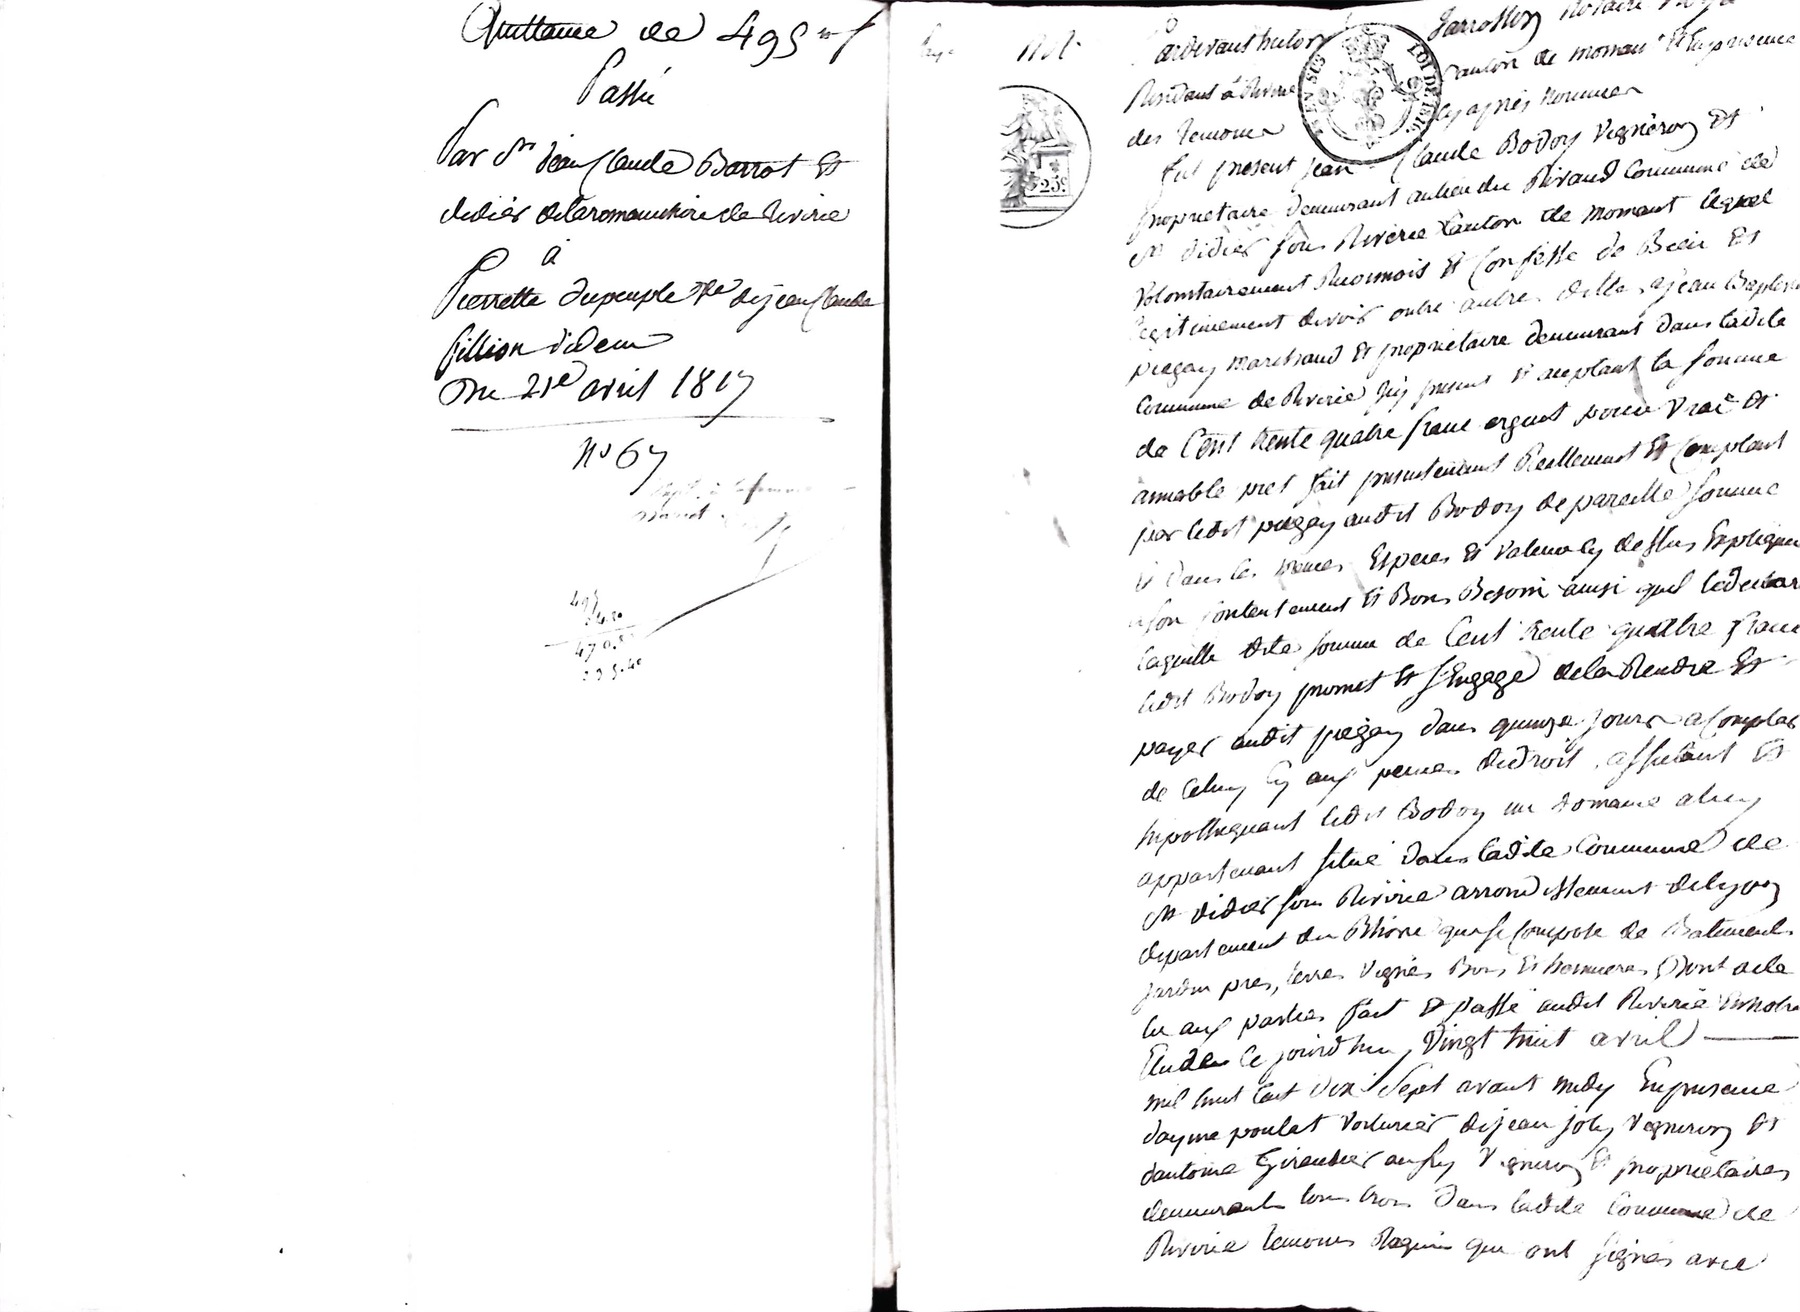 Quittance de 495 f
Passé
Par Sr jean Claude Barrot Et
didier delaromanchire de Riverie
à
Pierrette dupeuple Ve de jean Claude
fillion didem
Du 21e avril 1817
No 67
495
470.5
Pardevant
Jarrosson Notaire Royal
Résidant à Riverie
Canton de mornant Et En presence
des temoins
cy après nommés
25c
LOI DE 1816
fut présent jean Claude Bodoy Vigneron Et
propriétaire demeurant au lieu du Rivaud Commune de
St didier sous Riverie Canton de mornant lequel
Volontairement Reconnois Et Confesse de Bien Et
légitimement devoir outre autres dettes a jean Baptiste
piegay marchand Et propriétaire demeurant dans ladite
Commune de Riverie Icy present Et acceptant la somme
de Cent trente quatre franc argent pour vrai Et
amiable pret fait presentement Reellement Et Comptant
par ledit piegay audit Bodoy de pareille somme
Et dans les memes Especes Et valeur cy dessus Expliquée
a son Contentement Et Bons Besoin ainsi quil le declare
laquelle dite somme de Cent trente quattre franc
ledit Bodoy promet Et s'Engage de la Rendre Et
payer audit piegay dans quinze jours a Compter
de Celuy cy aux peines de droit, affectant Et
hipothequant ledit Bodoy un domaine a luy
appartenant situé dans ladite Commune de
St didier sous Riverie arrondissement de lyon
departement du Rhône qui se Compose de Batiments
jardin pres, terres vignes Bois Et hermures Dont acte
lu aux parties fait Et passé audit Riverie En notre
Etude Ce jourd'huy Vingt huit avril
mil huit Cent dix Sept avant midy En presence
dayme poulat Voiturier de jean joly Vigneron Et
dantoine Giraudier aussy Vigneron Et propriétaires
demeurants tous trois dans ladite Commune de
Riverie temoins Requis qui ont signés avec